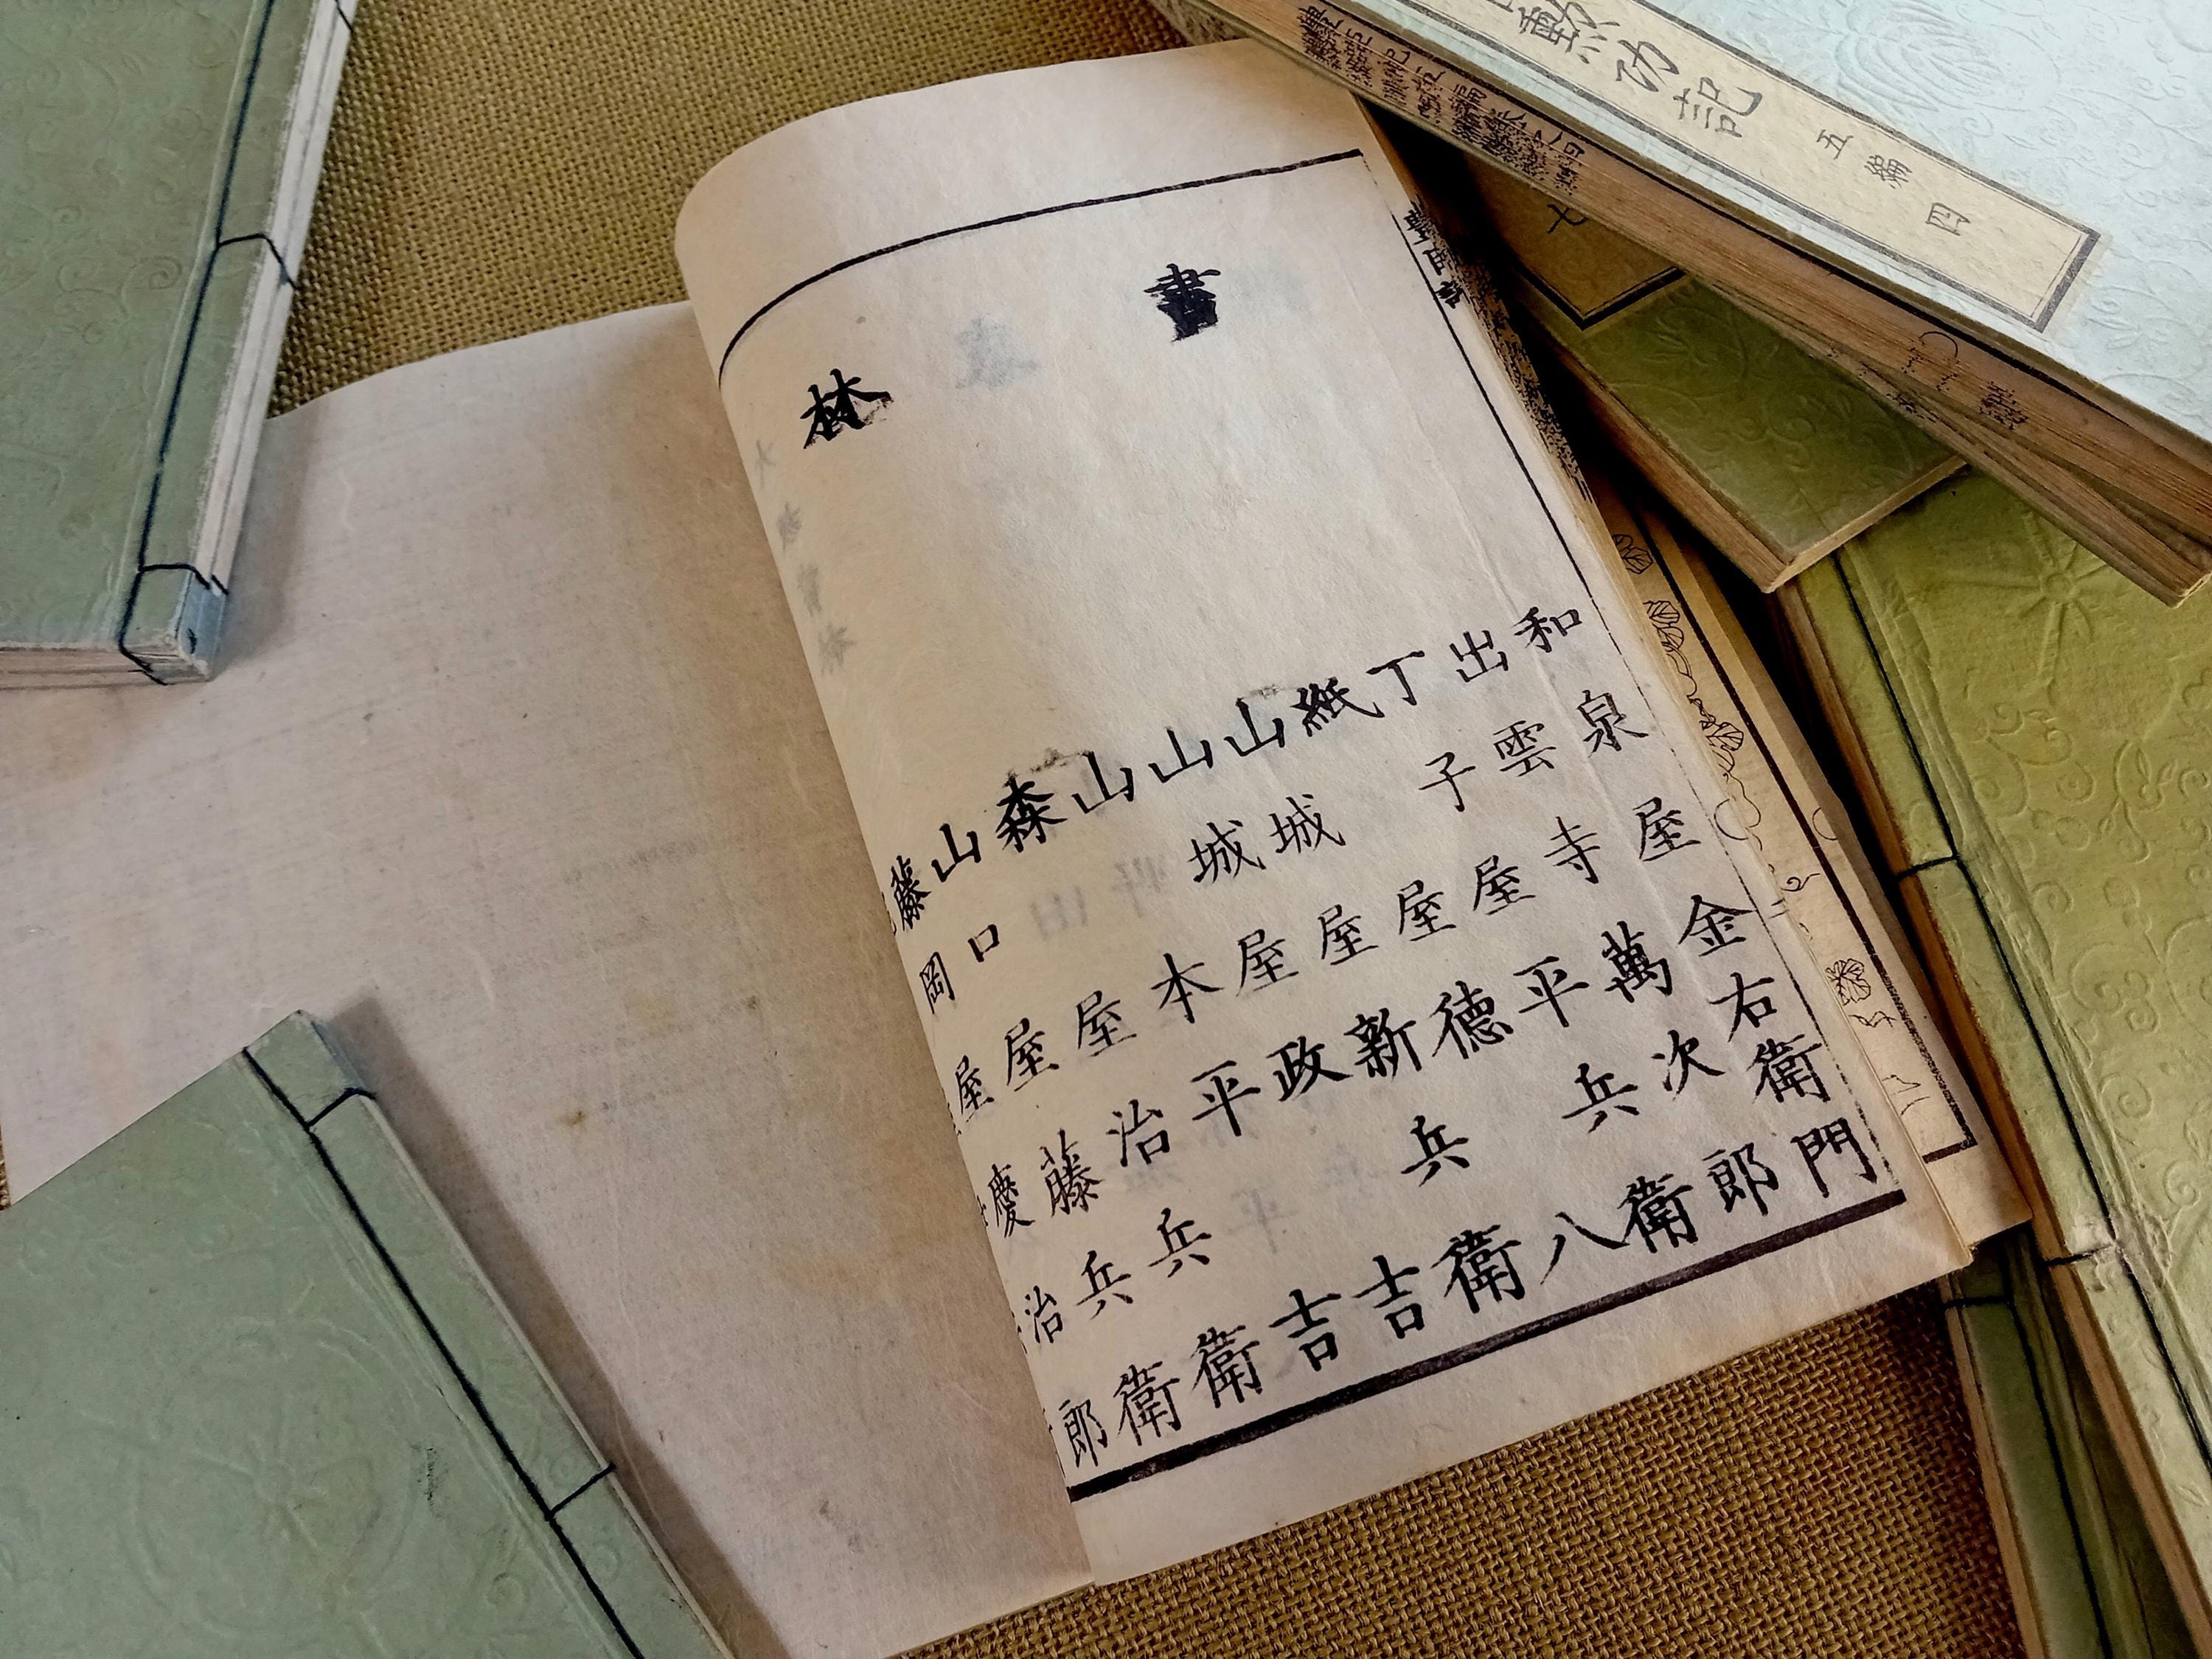 書林
和泉屋金右衛門
出雲寺萬次郎
丁子屋平兵衛
紙屋德八
山城屋新兵衛
山城屋政吉
山本平吉
森屋治兵衛
山口屋藤兵衛
藤岡屋慶治郎
勲功記 五編 四
七